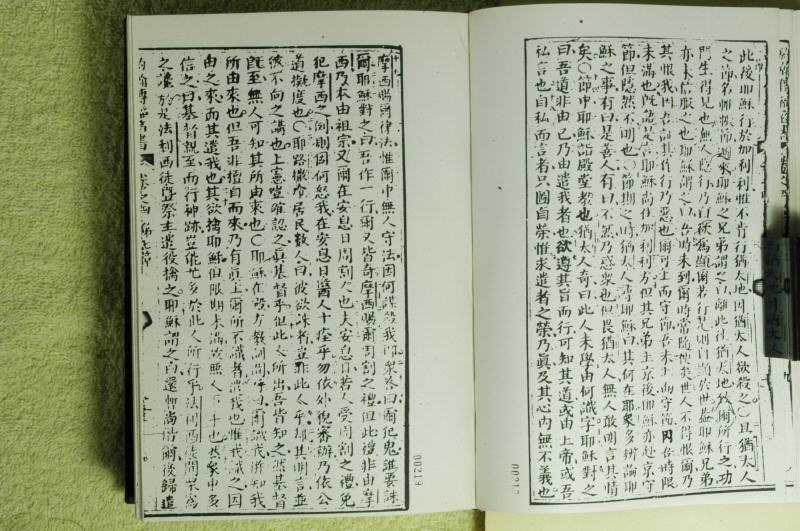 此後耶穌行於加利利惟不肯行猶太地因猶太人欲殺之○且猶太人
之節名帳幕節邇來耶穌之兄弟謂之曰離此往猶太地致爾所行之功
門生得見也無人隱行乃自欲為顯爾若行是則自顯於世蓋耶穌兄弟
亦未信服之也耶穌謂之曰吾時未到爾時常隨便世人不得恨爾乃
其恨我因吾証其行乃惡也爾可上而守節吾未上而守節因吾時限
未滿也既說是言耶穌尚住加利利方但其兄弟上京後耶穌亦赴京守
節但隱然不明也○節期之時猶太人尋耶穌曰其何在耶眾多辨論耶
穌之事有曰是善人有曰不然乃惑眾也但畏猶太人無人敢明言其情
矣○節中耶穌詣殿堂教也猶太人奇曰此人未學由何識字耶穌對之
曰吾道非由己乃由遣我者也欲遵其旨而行可知其道或由上帝或吾
私言也自私而言者只圖自榮惟求遣者之榮乃真及其心內無不義也
摩西賜爾律法惟爾中無人守法因何謀殺我耶眾答曰爾犯鬼誰要誅
爾耶穌對之曰吾作一行爾又皆奇摩西賜爾周割之禮但此禮非由摩
西乃本由祖宗又爾在安息日周割人也夫安息日若人受周割之禮免
犯摩西之例則因何怒我在安息日醫人十痊乎勿依外貌審辦乃依公
道擬度也○耶路撒冷居民數人曰彼欲誅者豈非此人乎却其明言並
彼不向之講也上憲豈確認之真基督乎但此人所出吾皆知之然基督
既至無人可知其所由來也○耶穌在殿方教訓間呼曰爾識我併知我
所由來也但吾非擅自而來乃有真上爾所不識者遣我也惟我識之因
由之來而其遣我也其欲擒耶穌但限期未滿故無人下手也然眾中多
信之曰基督親至而行神跡豈能尤多於此人所行乎法利西徒聞眾為
之議於是法利西徒暨祭主遣役擒之耶穌謂之曰還暫尚偕爾後歸遣
約翰傳福音書 卷之四 第七節
00213